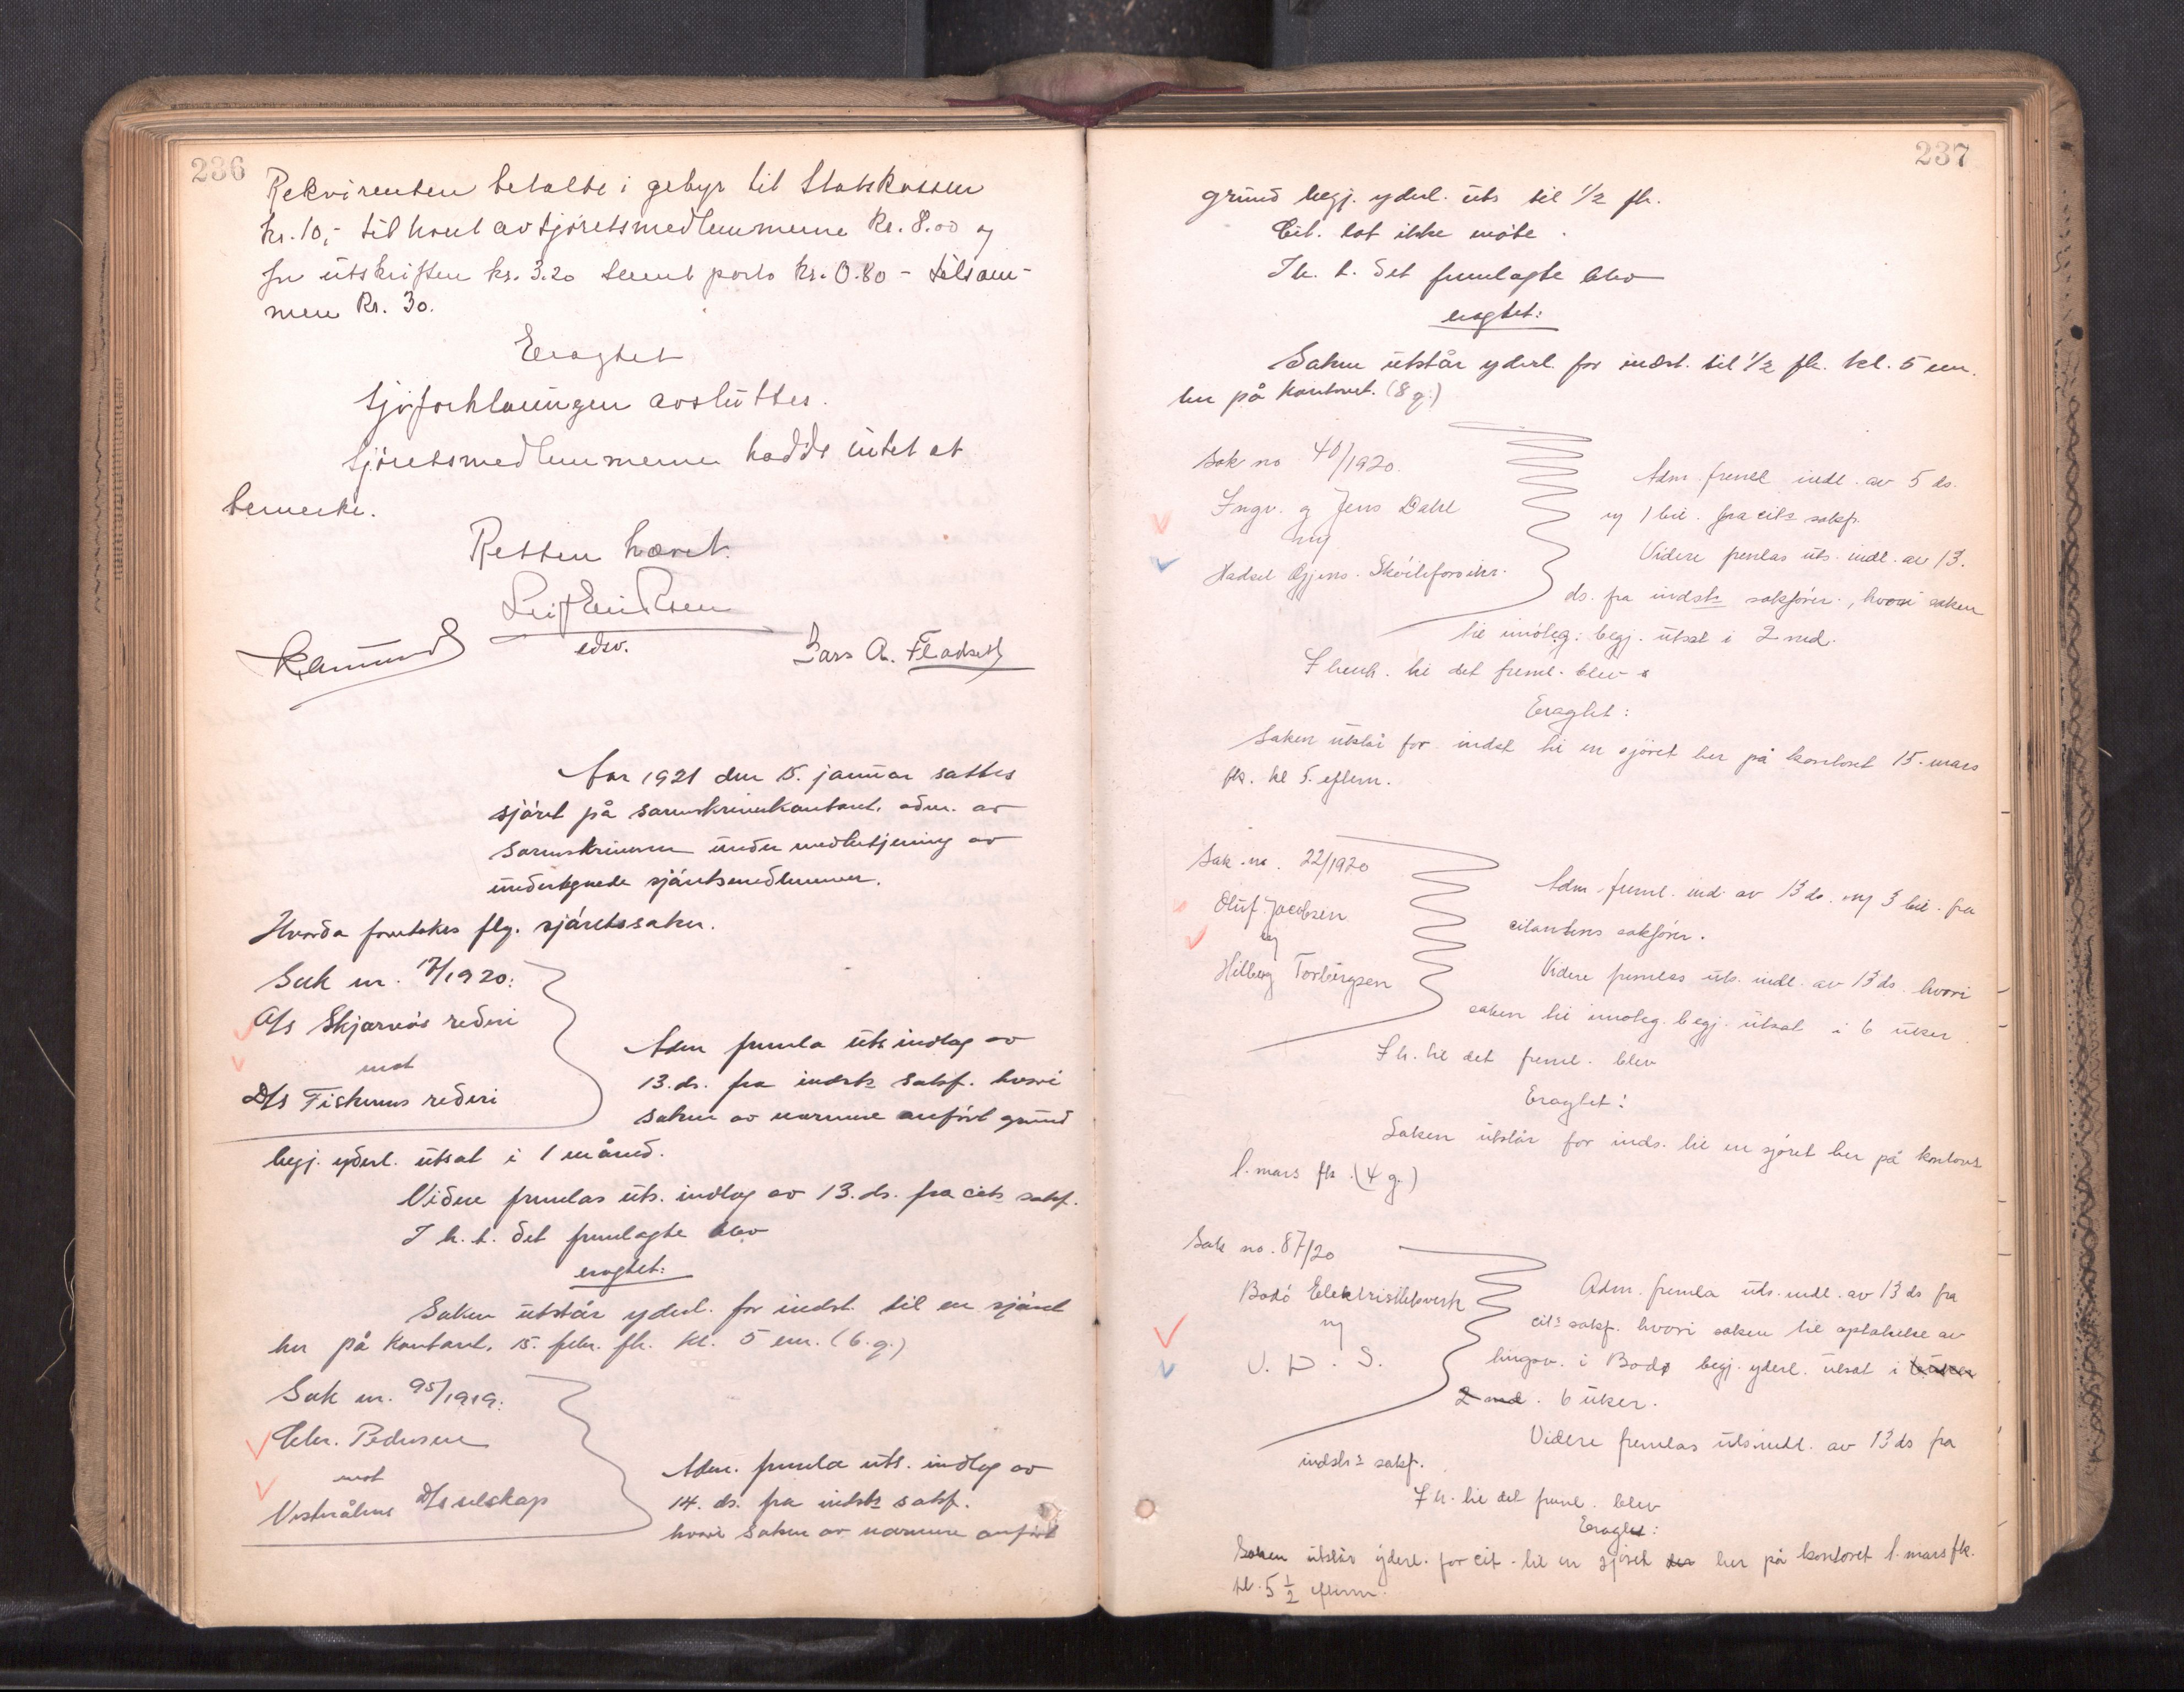 236
Rekvirenten betalte i gebyr til Statskassen
kr. 10,- til hvert av sjøretsmedlemmerne kr. 8.00 og
for utskriften kr. 3.20 samt porto kr. 0.80 - tilsam-
men kr. 30.
Eragtet
Sjøforklaringen avsluttes.
Sjøretsmedlemmerne hadde intet at
bemerke.
Retten hævet.
Leif Eriksen
edsv.
Lars A. Fladseth
Aar 1921 den 15. januar sattes
sjøret på sorenskriverkontoret, adm. av
sorenskriveren under medbetjening av
undertegnede sjøretsmedlemmer.
Hvorda foretokes flg. sjøretssaker.
Sak nr. 17/1920:
A/s Skjervøs rederi
mot
D/s Fiskenes rederi
Adm fremla uts. indlæg av
13. ds. fra indsts saksf. hvori
saken av nærmere anført grund
begj. yderl. utsat i 1 måned.
Videre fremlas uts. indlæg av 13. ds. fra cits saksf.
I h. t. det fremlagte blev
eragtet:
Saken utstår yderl. for indst. til en sjøret
her på kontoret, 15. febr. fk. kl. 5 em. (6. g.)
Sak nr. 95/1919:
Chr. Pedersen
mot
Vesterålens D/s selskap
Adm. fremla uts. indlæg av
14. ds. fra indsts saksf.
hvori saken av nærmere anført
237
grund begj. yderl. uts til 1/2 fk.
Cit. lot ikke møte.
I h. t. det fremlagte blev
eragtet:
Saken utstår yderl. for indst. til 1/2 fk. kl. 5 em.
her på kontoret. (8 g.)
Sak no 40/1920.
Ingv. og Jens Dahl
mj
Hadsel Gjens. Skøiteforsikr.
Adm. freml indl. av 5 ds.
mj 1 bil. fra cits saksf.
Videre fremlas uts. indl. av 13.
ds. fra indsts sakfører., hvori saken
til imøteg. begj. utsat i 2 md.
I henh. til det freml. blev
Eragtet:
Saken utstår for indst til en sjøret her på kontoret 15. mars
fk. kl 5. efterm.
Sak no. 22/1920
Oluf Jacobsen
mj
Hilberg Torbergsen
Adm. freml. ind. av 13 ds. mj 3 bil. fra
citantens sakfører.
Videre fremlas uts. indl. av 13 ds. hvori
saken til imøteg. begj. utsat i 6 uker.
I h. til det freml. blev
Eragtet:
Saken utstår for inds. til en sjøret her på kontoret
1. mars fk. (4 g.)
Sak no. 87/20
Bodø Elektrisitetsverk
mj
V. D. S.
Adm. fremla uts. indl. av 13 ds fra
cits saksf. hvori saken til optakelse av
tingsv. i Bodø begj. yderl. utsat i
2 md. 6 uker.
Videre fremlas uts. indl. av 13 ds fra
indsts saksf.
I h. til det freml. blev
Eragtet:
Saken utstår yderl. for cit. til en sjøret der her på kontoret 1. mars fk.
kl. 5 1/2 efterm.